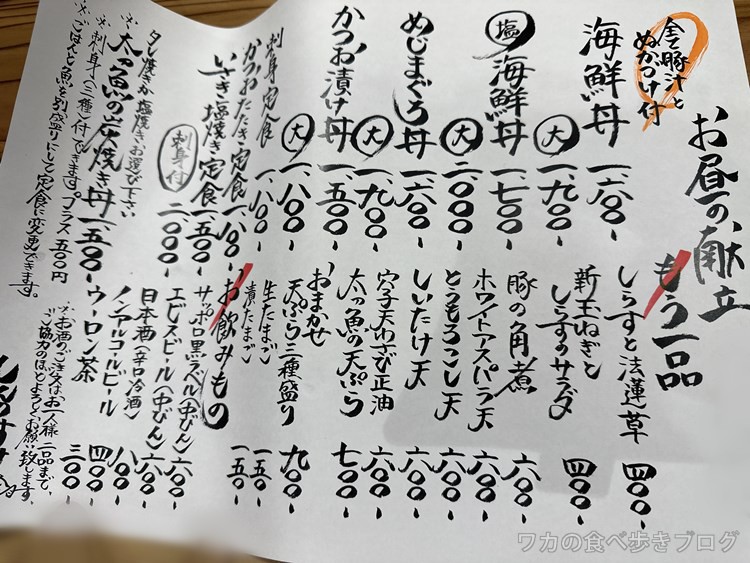 お昼の献立
全て豚汁と
ぬかづけ付
海鮮丼 一、六〇〇-
大 一、九〇〇-
塩 海鮮丼 一、七〇〇-
大 二、〇〇〇-
めじまぐろ丼 一、六〇〇-
大 一、九〇〇-
かつお漬け丼 一、五〇〇-
大 一、八〇〇-
刺身定食 一、八〇〇-
かつおたたき定食 一、八〇〇-
いさき塩焼き定食 一、五〇〇-
刺身付 二、〇〇〇-
タレ焼きか塩焼きお選び下さい
太刀魚の炭焼き丼 一、五〇〇-
※刺身(三種)付できます。プラス五〇〇円
※ごはんと魚を別盛りにして定食に変更できます。
もう一品
しらすと法蓮草 四〇〇-
新玉ねぎと
しらすのサラダ 四〇〇-
豚の角煮 六〇〇-
ホワイトアスパラ天 六〇〇-
とうもろこし天 六〇〇-
しいたけ天 六〇〇-
穴子天わさび正油 六〇〇-
太刀魚の天ぷら 七〇〇-
おまかせ
天ぷら三種盛り 九〇〇-
生たまご 一五〇-
漬たまご 一五〇-
お飲みもの
サッポロ黒ラベル(中びん) 六〇〇-
エビスビール(中びん) 六〇〇-
日本酒(辛口冷酒) 八〇〇-
ノンアルコールビール 四〇〇-
ウーロン茶 三〇〇-
※お酒のご注文はお一人様二品まで。
ご協力のほどよろしくお願い致します。
ワカの食べ歩きブログ